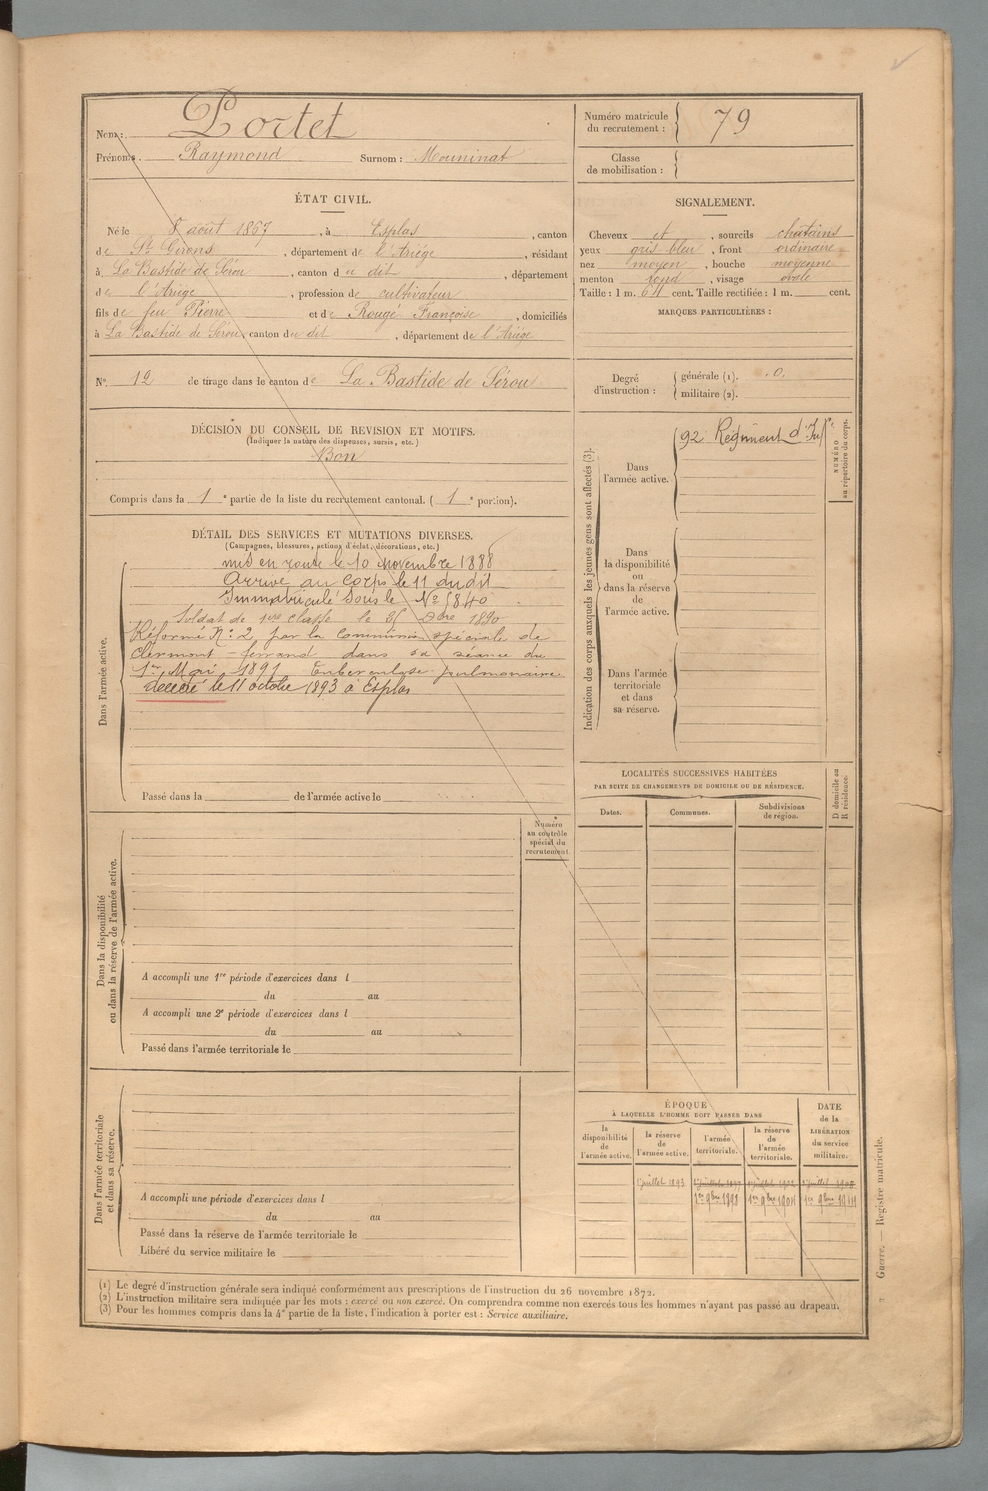 Nom : Portet
Prénoms : Raymond Surnom : Mouninat
Numéro matricule
du recrutement : 79
Classe
de mobilisation :
ÉTAT CIVIL.
Né le 8 août 1867, à Esplas, canton
de St Girons, département de l'Ariége, résidant
à La Bastide de Sérou, canton du dit, département
de l'Ariége, profession de cultivateur
fils de feu Pierre et de Rougé Françoise, domiciliés
à La Bastide de Sérou, canton du dit, département de l'Ariége
SIGNALEMENT.
Cheveux et, sourcils chatains
yeux gris bleu, front ordinaire
nez moyen, bouche moyenne
menton rond, visage ovale
Taille : 1 m. 64 cent. Taille rectifiée : 1 m. cent.
MARQUES PARTICULIÈRES :
N° 12 de tirage dans le canton de La Bastide de Sérou
Degré
d'instruction :
générale (1). 0.
militaire (2).
DÉCISION DU CONSEIL DE REVISION ET MOTIFS.
(Indiquer la nature des dispenses, sursis, etc.)
Bon
Compris dans la 1e partie de la liste du recrutement cantonal. (1e portion).
Indication des corps auxquels les jeunes gens sont affectés (3).
Dans
l'armée active.
92 Régiment d'Infie
NUMÉRO
au répertoire du corps.
Dans
la disponibilité
ou
dans la réserve
de
l'armée active.
Dans l'armée
territoriale
et dans
sa réserve.
DÉTAIL DES SERVICES ET MUTATIONS DIVERSES.
(Campagnes, blessures, actions d'éclat, décorations, etc.)
Dans l'armée active.
mis en route le 10 novembre 1888
Arrivé au corps le 11 du dit
Immatriculé sous le N° 5840
Soldat de 1ere classe le 25 Xbre 1890
Réformé N° 2 par la Commission spéciale de
Clermont-ferrand dans sa séance du
1er Mai 1891 Tuberculose pulmonaire
décédé le 11 octobre 1893 à Esplas
Passé dans la de l'armée active le
LOCALITÉS SUCCESSIVES HABITÉES
PAR SUITE DE CHANGEMENTS DE DOMICILE OU DE RÉSIDENCE.
Dates.
Communes.
Subdivisions
de région.
D domicile ou
R résidence.
Numéro
au contrôle
spécial du
recrutement.
Dans la disponibilité
ou dans la réserve de l'armée active.
A accompli une 1re période d'exercices dans l
du au
A accompli une 2e période d'exercices dans l
du au
Passé dans l'armée territoriale le
Dans l'armée territoriale
et dans sa réserve.
A accompli une période d'exercices dans l
du au
Passé dans la réserve de l'armée territoriale le
Libéré du service militaire le
ÉPOQUE
À LAQUELLE L'HOMME DOIT PASSER DANS
la
disponibilité
de
l'armée active.
la réserve
de
l'armée active.
l'armée
territoriale.
la réserve
de
l'armée
territoriale.
DATE
de la
LIBÉRATION
du service
militaire.
1 juillet 1893 1 juillet 1897 1 juillet 1902 1 juillet 1908
1er 9bre 1898 1er 9bre 1904 1er 9bre 1911
Guerre. — Registre matricule.
(1) Le degré d'instruction générale sera indiqué conformément aux prescriptions de l'instruction du 26 novembre 1872.
(2) L'instruction militaire sera indiquée par les mots : exercé ou non exercé. On comprendra comme non exercés tous les hommes n'ayant pas passé au drapeau.
(3) Pour les hommes compris dans la 4e partie de la liste, l'indication à porter est : Service auxiliaire.